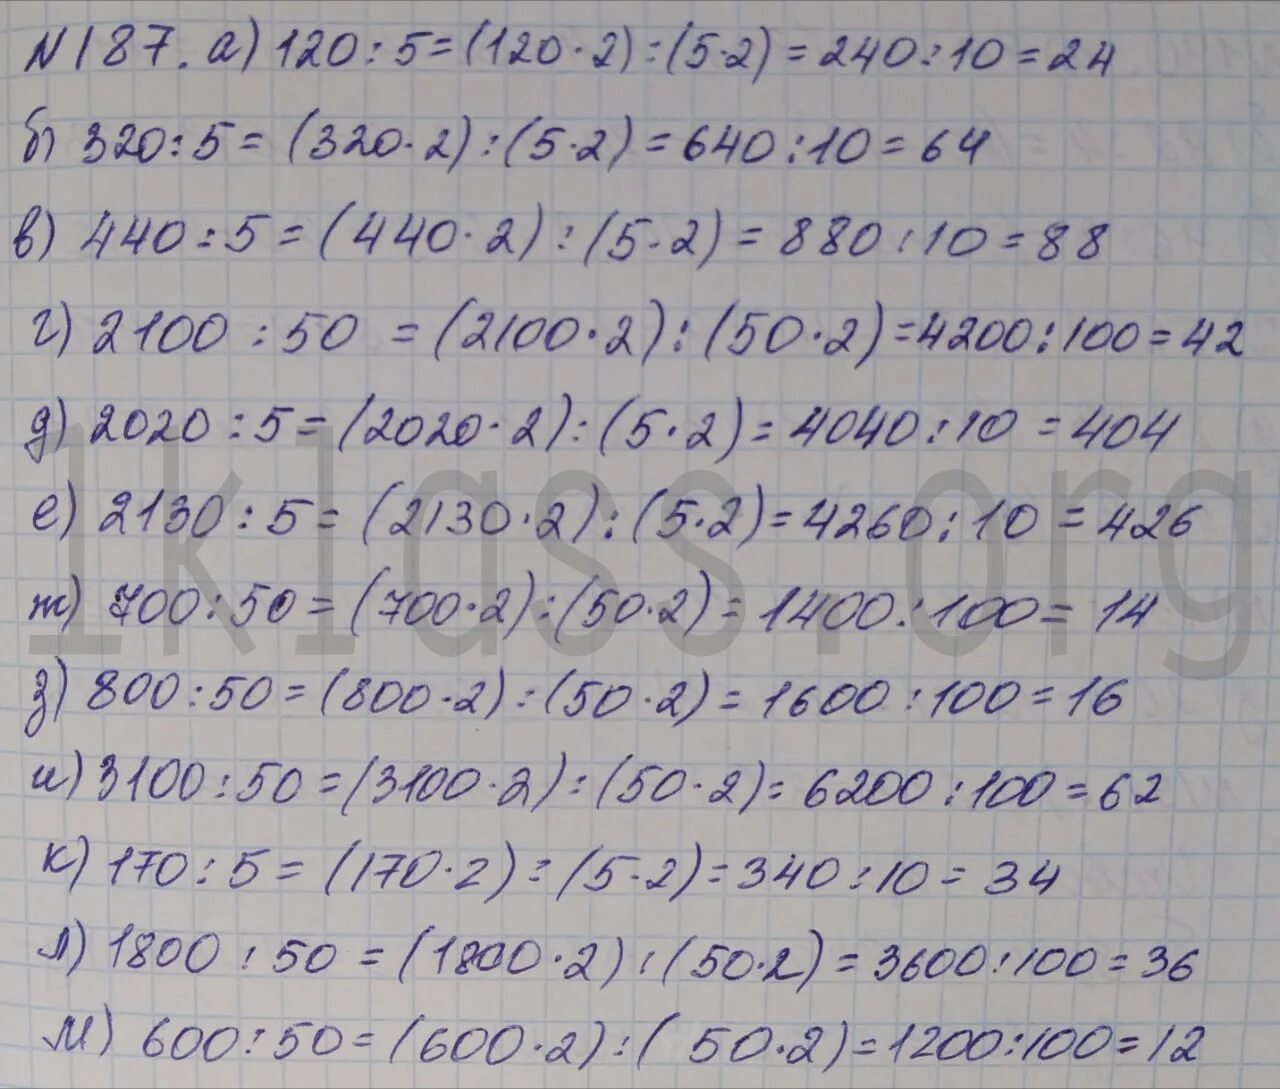 №187. а) 120 : 5 = (120 · 2) : (5 · 2) = 240 : 10 = 24
б) 320 : 5 = (320 · 2) : (5 · 2) = 640 : 10 = 64
в) 440 : 5 = (440 · 2) : (5 · 2) = 880 : 10 = 88
г) 2100 : 50 = (2100 · 2) : (50 · 2) = 4200 : 100 = 42
д) 2020 : 5 = (2020 · 2) : (5 · 2) = 4040 : 10 = 404
е) 2130 : 5 = (2130 · 2) : (5 · 2) = 4260 : 10 = 426
ж) 700 : 50 = (700 · 2) : (50 · 2) = 1400 : 100 = 14
з) 800 : 50 = (800 · 2) : (50 · 2) = 1600 : 100 = 16
и) 3100 : 50 = (3100 · 2) : (50 · 2) = 6200 : 100 = 62
к) 170 : 5 = (170 · 2) : (5 · 2) = 340 : 10 = 34
л) 1800 : 50 = (1800 · 2) : (50 · 2) = 3600 : 100 = 36
м) 600 : 50 = (600 · 2) : (50 · 2) = 1200 : 100 = 12
1klass.org